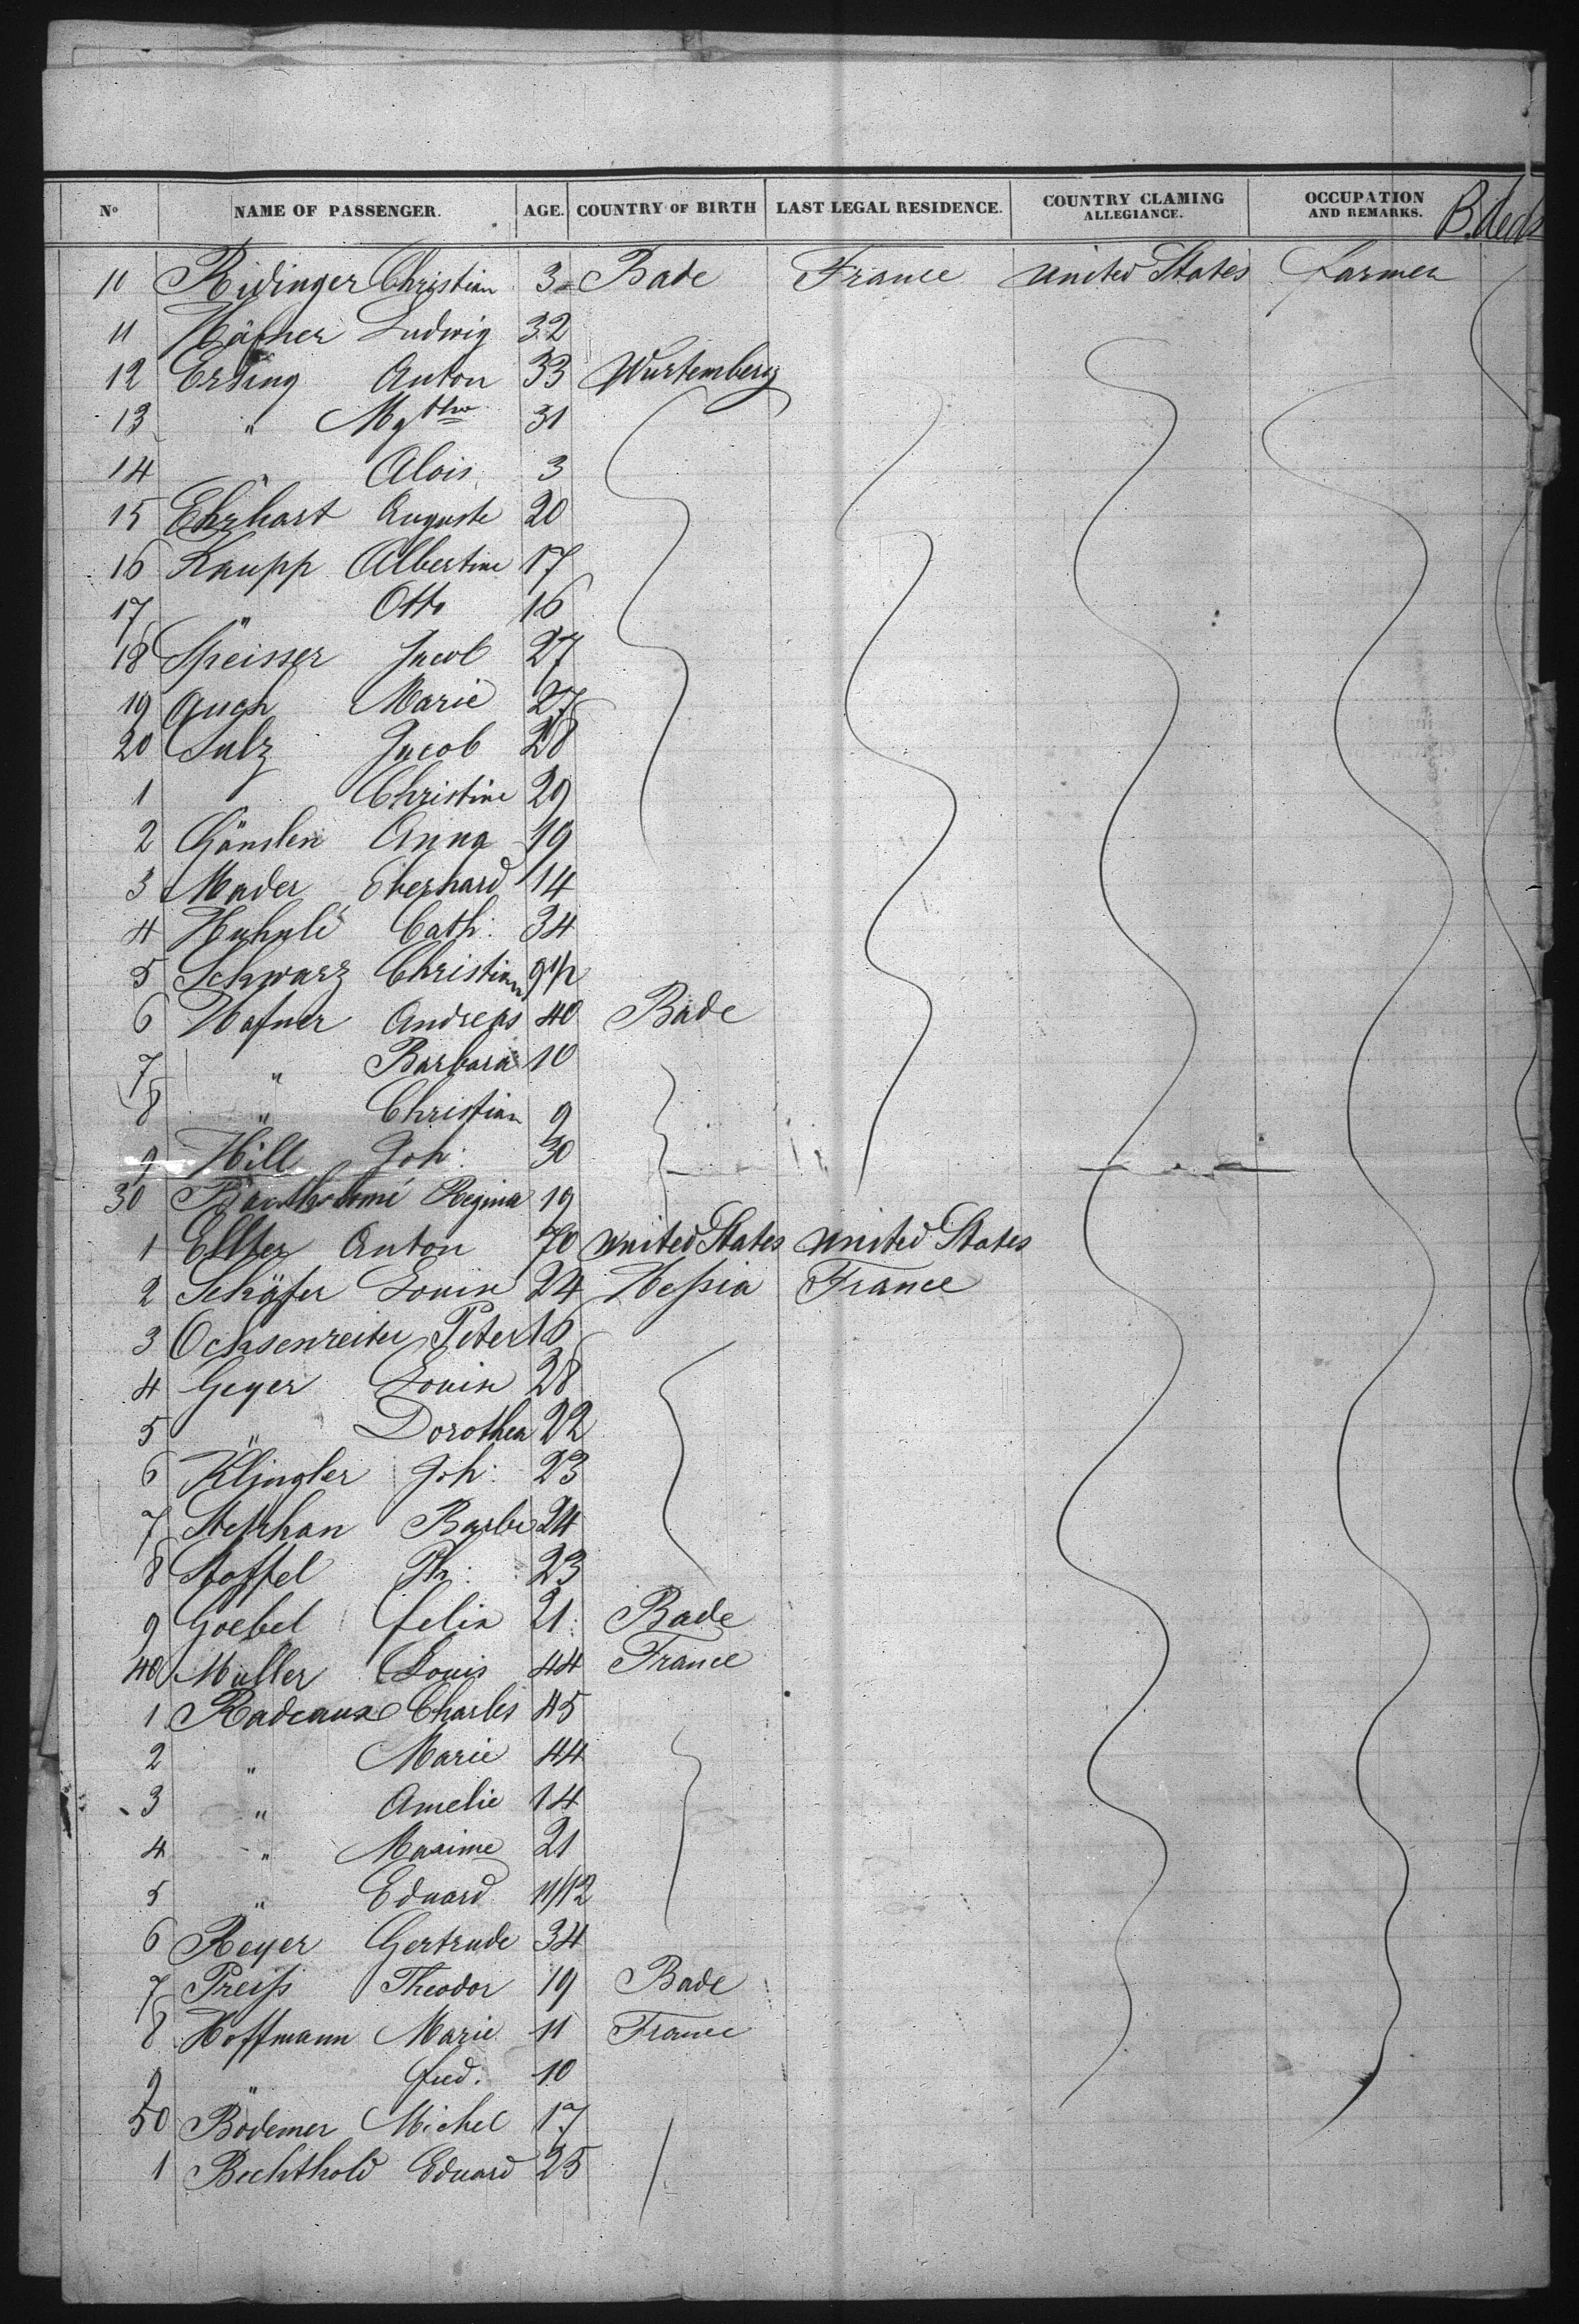 No NAME OF PASSENGER. AGE. COUNTRY OF BIRTH LAST LEGAL RESIDENCE. COUNTRY CLAMING ALLEGIANCE. OCCUPATION AND REMARKS.
10 Ridinger Christian 3 Bade France United States Farmer
11 Häfner Ludwig 32
12 Ersing Anton 33 Wurtemberg
13 " 31
14 " Alois 3
15 Ehrhart Auguste 20
16 Kaupp Albertine 17
17 " Otto 16
18 Speisser Jacob 27
19 Auch Marie 27
20 Sulz Jacob 28
1 Christine 29
2 Gänslen Anna 19
3 Mader Eberhard 14
4 Cath: 34
5 Schwarz Christian
6 Hafner Andreas 40 Bade
7 " Barbara 10
8 " Christian 9
9 Hill Joh: 30
30 Regina 19
1 Anton 70 United States United States
2 Schäfer Louise 24 Hessia France
3 Ochsenreiter Peter 16
4 Geyer Louise 28
5 " Dorothea 22
6 Klingler Joh: 23
7 Barbe 24
8 Stoffel Ph: 23
9 Goebel Felix 21 Bade
40 Muller Louis 44 France
1 Radeaux Charles 45
2 " Marie 44
3 " Amelie 14
4 " Maxime 21
5 " Eduard 11/12
6 Reyer Gertrude 34
7 Preiss Theodor 19 Bade
8 Hoffmann Marie 11 France
9 " Fred. 10
50 Bodemer Michel 17
1 Bechthold Eduard 25